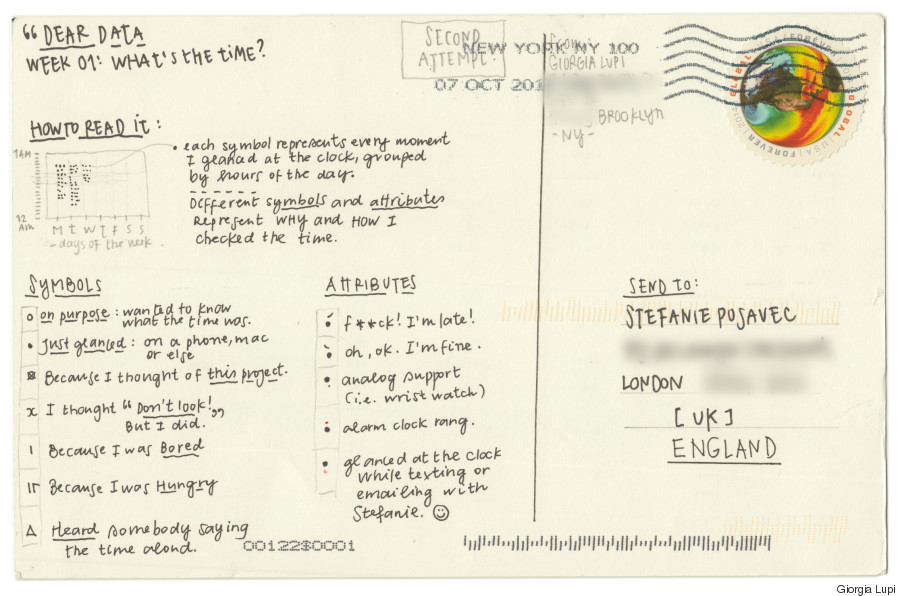 “ DEAR DATA
WEEK 01: WHAT'S THE TIME?
SECOND
ATTEMPT!
NEW YORK NY 100
07 OCT 201
From:
GIORGIA LUPI
BROOKLYN
-NY-
GLOBAL USA FOREVER
HOW TO READ IT:
12AM
M t W T F S S
- days of the week -
each symbol represents every moment
I gleaned at the clock, grouped
by hours of the day.
Different symbols and attributes
Represent WHY and HOW I
checked the time.
SYMBOLS
on purpose: wanted to know
what the time was.
Just glanced: on a phone, mac
or else
Because I thought of this project.
I thought “Don't look!„
But I did.
Because I was Bored
Because I was Hungry
Heard somebody saying
the time aloud.
ATTRIBUTES
f**ck! I'm late!
oh, ok. I'm fine.
analog support
(i.e. wrist watch)
alarm clock rang.
gleaned at the clock
while texting or
emailing with
Stefanie. ☺
SEND TO:
STEFANIE POSAVEC
LONDON
[UK]
ENGLAND
00122$0001
Giorgia Lupi